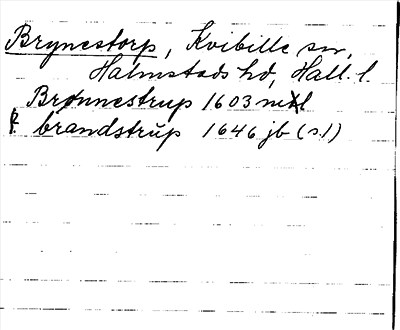 Brynestorp, Kvibille sn,
Halmstads hd, Hall. l.
Brønnestrup 1603 mtl
brandstrup 1646 jb (s. 1)